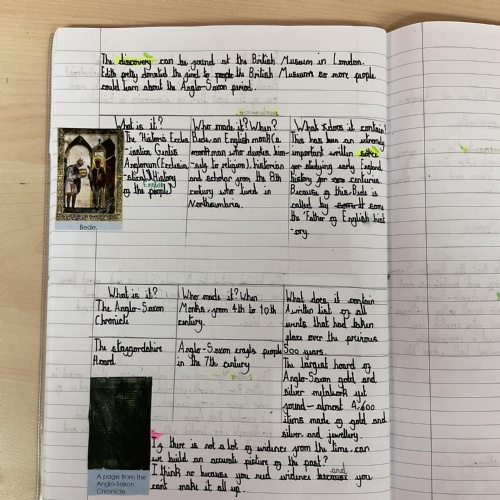 The discovery can be found at the British Museum in London.
Edith pretty donated the find to people the British Museum so more people
could learn about the Anglo-Saxon period.
What is it?
The 'Historia Eccles
-iastica Gentis
Anglorum (Ecclesia
-stical History
of the English people)
Who made it? When?
Bede, an English monk (a
monk man who devotes him-
-self to religion), historian
and scholar from the 8th
century who lived in
Northumbria.
What does it contain?
This has been an extremely
important written source
for studying early England
history for over centuries.
Because of this, Bede is
called by some
the 'Father of English hist
-ory.
Bede.
What is it?
The Anglo-Saxon
Chronicle
Who made it? When
Monks, from 9th to 10th
century.
What does it contain
A written list of all
events that had taken
place over the previous
500 years.
The staggordshire
Hoard.
Anglo-Saxon crafts people
in the 7th century
The largest hoard of
Anglo-Saxon gold and
silver metalwork yet
found - almost 4,600
items made of gold and
silver and jewellery.
A page from the
Anglo-Saxon
Chronicle.
If there is not a lot of evidence from the time, can
we build an accurate picture of the past?
I think no because you need evidence and because you
cant make it all up.